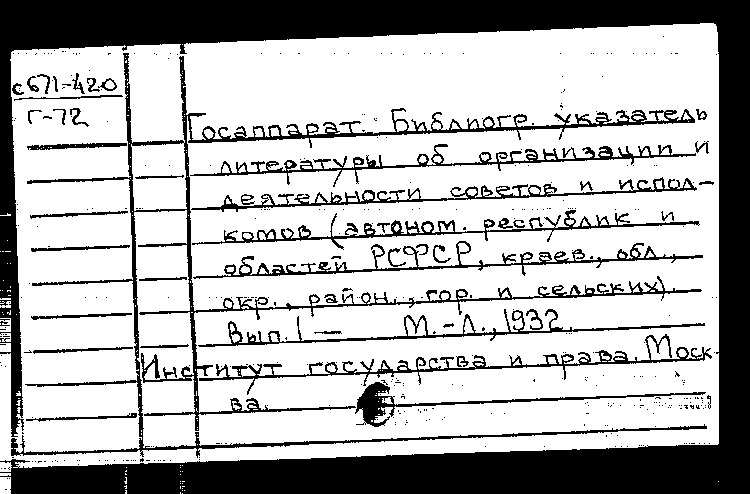 с671-420
Г-72
Госаппарат. Библиогр. указатель
литературы об организации и
деятельности советов и испол-
комов (автоном. республик и
областей РСФСР, краев., обл.,
окр., район., гор. и сельских).
Вып. 1 — М.-Л., 1932.
Институт государства и права. Моск-
ва.